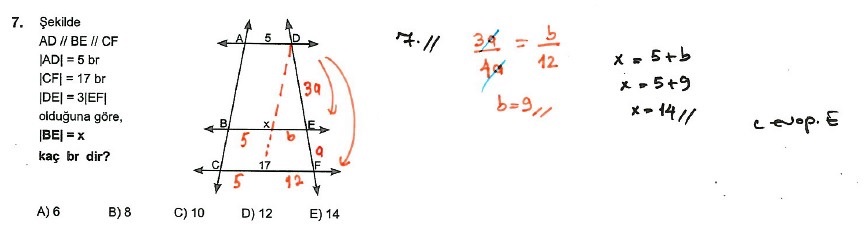 7. Şekilde
AD // BE // CF
|AD| = 5 br
|CF| = 17 br
|DE| = 3|EF|
olduğuna göre,
|BE| = x
kaç br dir?
A 5 D
3a
B x E
5 b
a
C 17 F
5 12
A) 6 B) 8 C) 10 D) 12 E) 14
7.//
3a/4a = b/12
b=9//
x = 5+b
x = 5+9
x = 14//
cevap. E